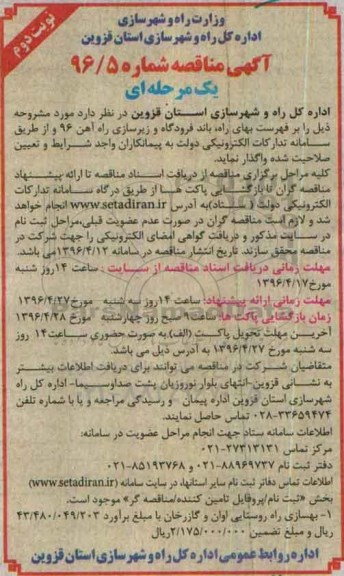 نوبت دوم
وزارت راه و شهرسازی
اداره کل راه و شهرسازی استان قزوین
آگهی مناقصه شماره ۹۶/۵
یک مرحله ای
اداره کل راه و شهرسازی استان قزوین در نظر دارد مورد مشروحه
ذیل را بر فهرست بهای راه، باند فرودگاه و زیرسازی راه آهن ۹۶ و از طریق
سامانه تدارکات الکترونیکی دولت به پیمانکاران واجد شرایط و تعیین
صلاحیت شده واگذار نماید.
کلیه مراحل برگزاری مناقصه از دریافت اسناد مناقصه تا ارائه پیشنهاد
مناقصه گران تا بازگشایی پاکت ها از طریق درگاه سامانه تدارکات
الکترونیکی دولت (ستاد)به آدرس www.setadiran.ir انجام خواهد
شد و لازم است مناقصه گران در صورت عدم عضویت قبلی،مراحل ثبت نام
در سایت مذکور و دریافت گواهی امضای الکترونیکی را جهت شرکت در
مناقصه محقق سازند. تاریخ انتشار مناقصه در سامانه ۱۳۹۶/۴/۱۲می باشد.
مهلت زمانی دریافت اسناد مناقصه از سایت : ساعت ۱۴روز شنبه
مورخ۱۳۹۶/۴/۱۷
مهلت زمانی ارائه پیشنهاد: ساعت ۱۴روز سه شنبه مورخ۱۳۹۶/۴/۲۷
زمان بازگشایی پاکت ها: ساعت۹صبح روز چهارشنبه مورخ ۱۳۹۶/۴/۲۸
آخرین مهلت تحویل پاکت (الف) به صورت حضوری ساعت۱۴ روز
سه شنبه مورخ ۱۳۹۶/۴/۲۷ به آدرس ذیل می باشد.
متقاضیان شرکت در مناقصه می توانند برای دریافت اطلاعات بیشتر
به نشانی قزوین-انتهای بلوار نوروزیان پشت صداوسیما- اداره کل راه
شهرسازی استان قزوین اداره پیمان و رسیدگی مراجعه و یا با شماره تلفن
۰۲۸-۳۳۶۵۹۴۷۴ تماس حاصل نمایند.
اطلاعات سامانه ستاد جهت انجام مراحل عضویت در سامانه:
مرکز تماس ۲۷۳۱۳۱۳۱-۰۲۱
دفتر ثبت نام ۸۸۹۶۹۷۳۷-۰۲۱ و ۸۵۱۹۳۷۶۸-۰۲۱
اطلاعات تماس دفاتر ثبت نام سایر استانها، در سایت سامانه (www.setadiran.ir)
بخش «ثبت نام/پروفایل تامین کننده/مناقصه گر» موجود است.
۱- بهسازی راه روستایی اوان و گازرخان با مبلغ برآورد ۴۳/۴۸۰/۰۴۹/۲۰۳
ریال و مبلغ تضمین ۲/۱۷۵/۰۰۰/۰۰۰ریال
اداره روابط عمومی اداره کل راه و شهرسازی استان قزوین